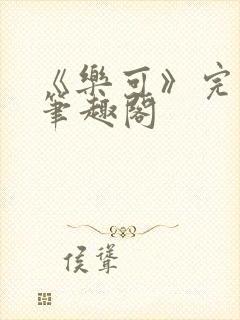 《樂可》完
筆趣閣
侯聳